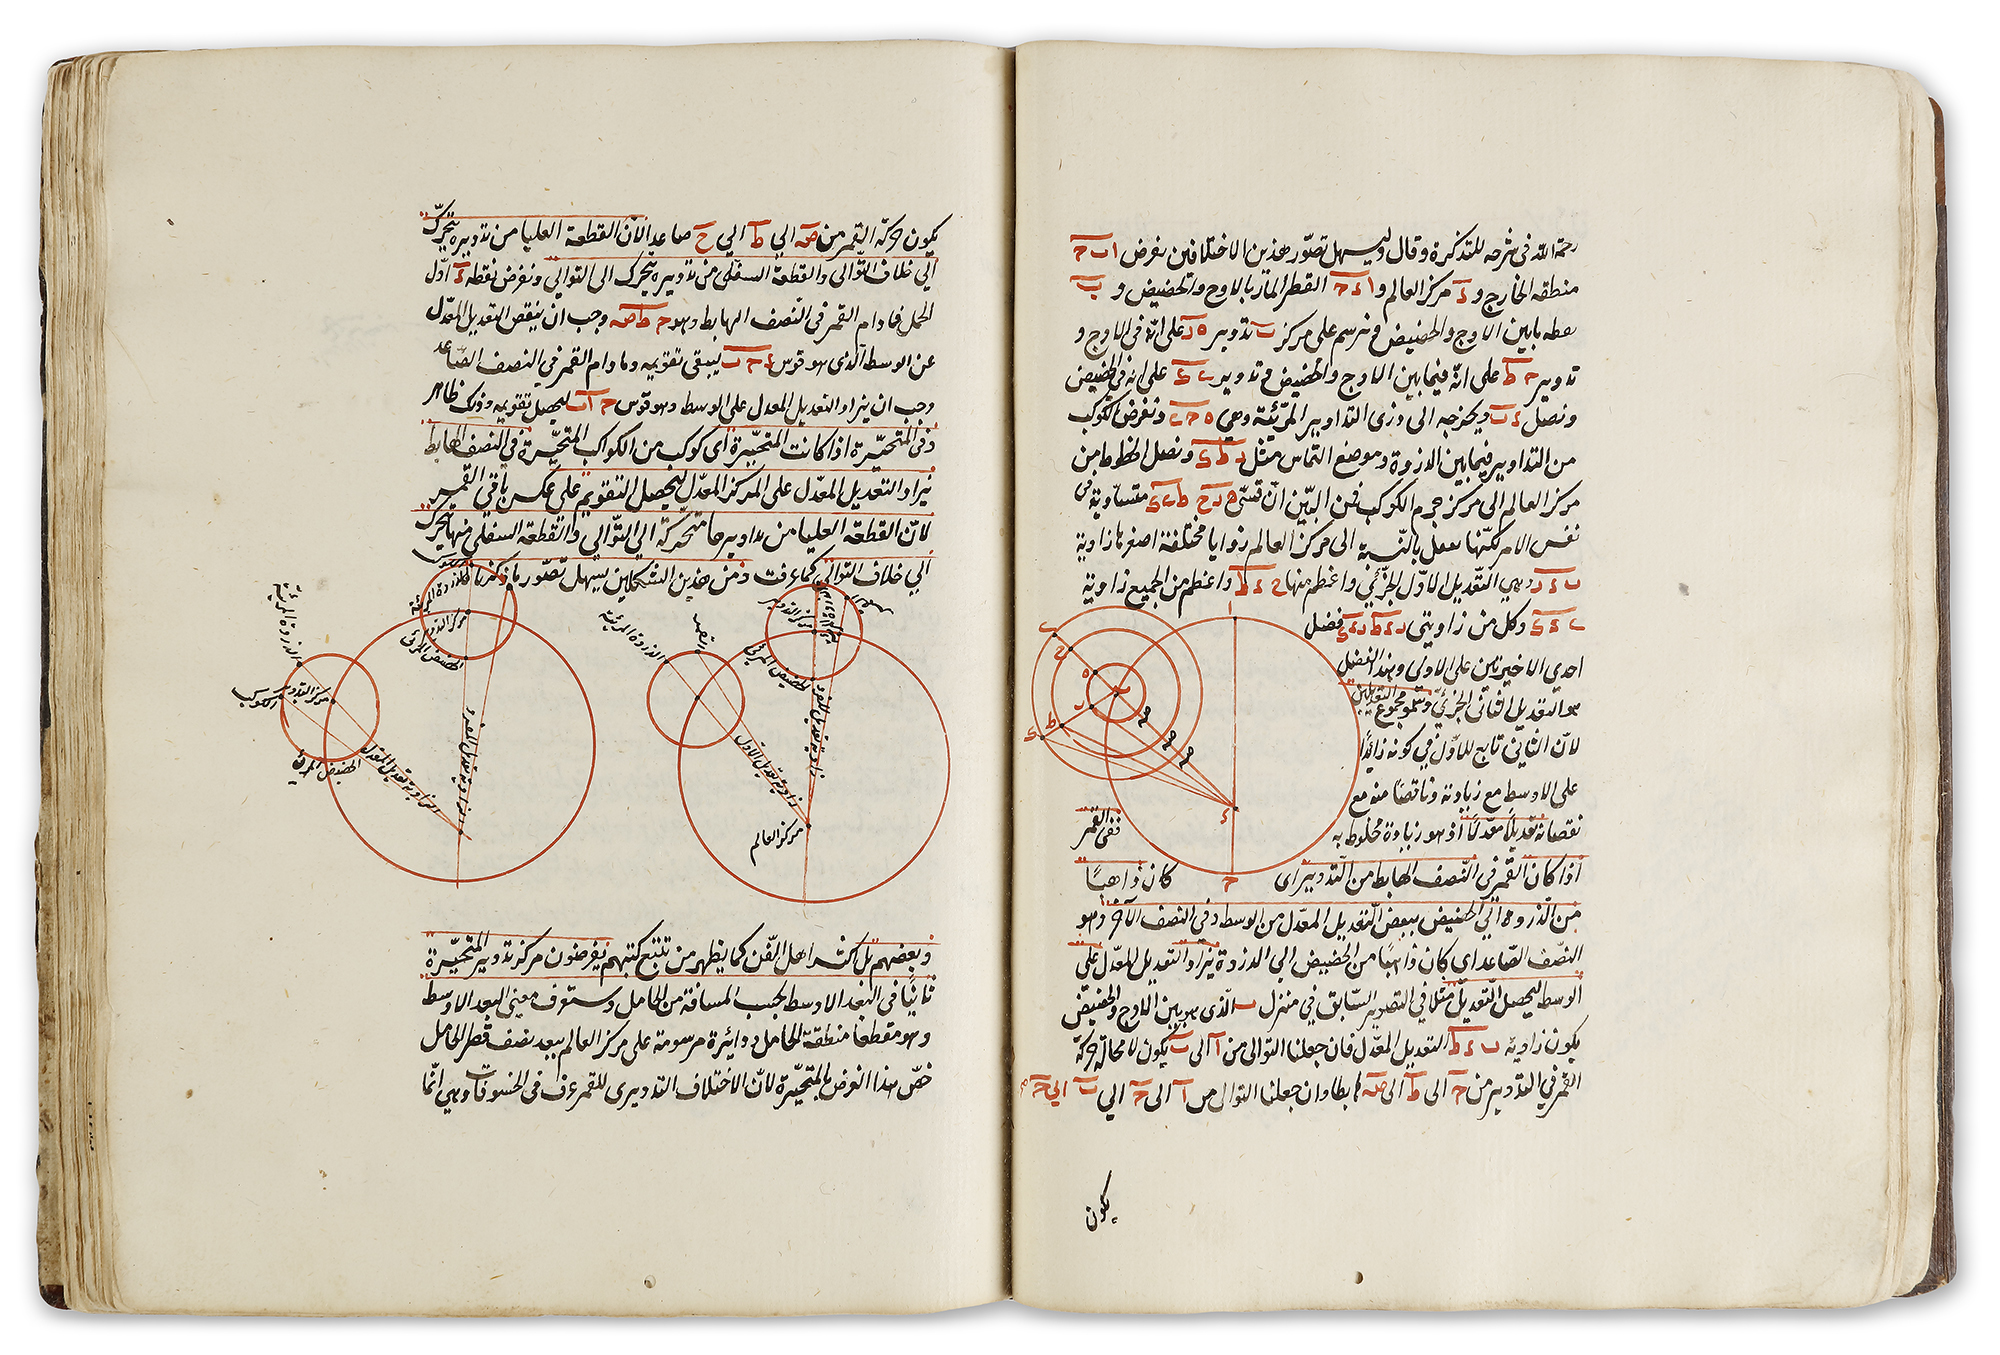 رحمة الله في شرحه للتذكرة وقال وليسهل تصوّر هذين الاختلافين نفرض ا ب ح
منطقة الخارج و ء مركز العالم و ا ء ح القطر المارّ بالاوج والحضيض و ب
نقطة ما بين الاوج والحضيض ونرسم على مركز ب تدوير ه ر على انّه في الاوج و
تدوير ح ط على انّه فيما بين الاوج والحضيض وتدوير على انه في الحضيض
ونصل ء ب ويخرجه الى ذرى التداوير المرئيّة وهي ه ح ونفرض الكوكب
من التداوير فيما بين الذروة وموضع التماس مثل ر ط ونصل الخطوط من
مركز العالم الى مركز جرم الكوكب فمن البيّن انّ قسيّ ه ر ح ط متساوية في
نفس الامر لكنّها بالنسبة الى مركز العالم زوايا مختلفة اصغرها زاوية
ب ء ر وهي التعديل الاوّل الجزئي واعظم منها ء ط واعظم من الجميع زاوية
وكل من زاويتي فضل
احدى الاخيرتين على الاولى وهذا الفضل
هو التعديل الثاني الجزئيّ مجموع التعديلين
لانّ الثاني تابع للاوّل في كونه زايدًا
على الاوسط مع زيادته وناقصًا منه مع
نقصانه تعديلًا معدّلًا اذ هو زيادة مخلوط به
ففي القمر
اذا كان القمر في النّصف الهابط من التّدوير اى كان ذاهبًا
من الذروة الى الحضيض ينقص التعديل المعدّل من الوسط وفي النصف الآخر وهو
النصّف الصّاعد اى كان ذاهبًا من الحضيض الى الذروة يزاد التعديل المعدّل على
الوسط ليحصل التعديل مثلا في التصوير السّابق في منزل ب الّذي هو بين الاوج والحضيض
يكون زاوية ب ء ط التعديل المعدّل فان جعلنا التوالي من ا الى ب يكون لا محالة حركة
القمر في التدوير من ح الى ط الى هابطا وان جعلنا التوالي من ا الى ح الى ب الى ح
يكون
يكون حركة القمر من الى ط الى ح صاعدا لانّ القطعة العليا من تدويره يتحرّك
الى خلاف التّوالي والقطعة السفلى من تدويره يتحرك الى التوالي ونفرض نقطة اوّل
الحمل فما دام القمر في النّصف الهابط وهو ح ط وجب ان ينقص التعديل المعدّل
عن الوسط الذي هو قوس ليبقى تقويمه وما دام القمر في النصف الصّاعد
وجب ان يزاد التعديل المعدل على الوسط وهو قوس ليحصل تقويمه وذلك ظاهر
وفي المتحيّرة اذا كانت المتحيّرة اى كوكب من الكواكب المتحيّرة في النصف الهابط
يزاد التعديل المعدّل على المركز المعدّل ليحصل التقويم على عكس باقي القمر
لانّ القطعة العليا من تداويرها متحرّكة الى التّوالي والقطعة السفلى منها يتحرك
الى خلاف التوالي كما عرفت ومن هذين الشكلين يسهل تصوّر ما ذكرنا
الذروة المرئية
مركز التدوير
الحضيض المرئي
الذروة المرئية
مركز التدوير
الكوكب
الحضيض المرئي
زاوية تعديل المعدل
مركز التدوير
الحضيض المرئي
الذروة المرئية
القمر
زاوية تعديل الاول
مركز العالم
وبعضهم بل اكثر اهل الفّن كما يظهر من تتبّع كتبهم يفرضون مركز تدوير المتحيّرة
ثانيًا في البعد الاوسط بحسب المسافة من الحامل وستعرف معنى البعد الاوسط
وهو مقطعا منطقة الحامل ودائرة مرسومة على مركز العالم ببعد نصف قطر الحامل
خصّ هذا الفرض بالمتحيّرة لانّ الاختلاف التدويرى للقمر عرف في الخسوفات وهي انّما